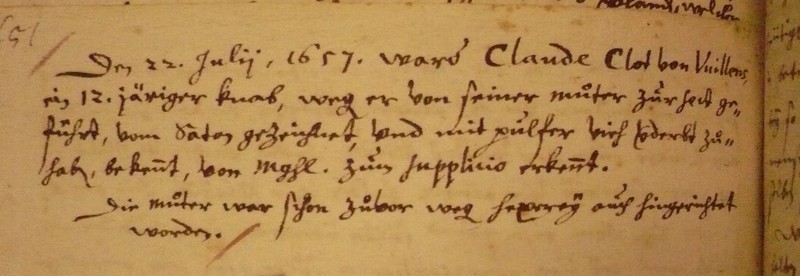 Den 22. Julij, 1657. ward Claude Clot von Vuillens,
ein 12. järiger knab, weg er von seiner muͦter zur sect ge-
führt, vom Satan gezeichnet, vnd mit pulfer vich verderbt zuͦ-
hab, bekent, von Mghl. zum supplicio erkent.
Die muͦter war schon zuͦvor weg hexerey auch hingerichtet
worden.